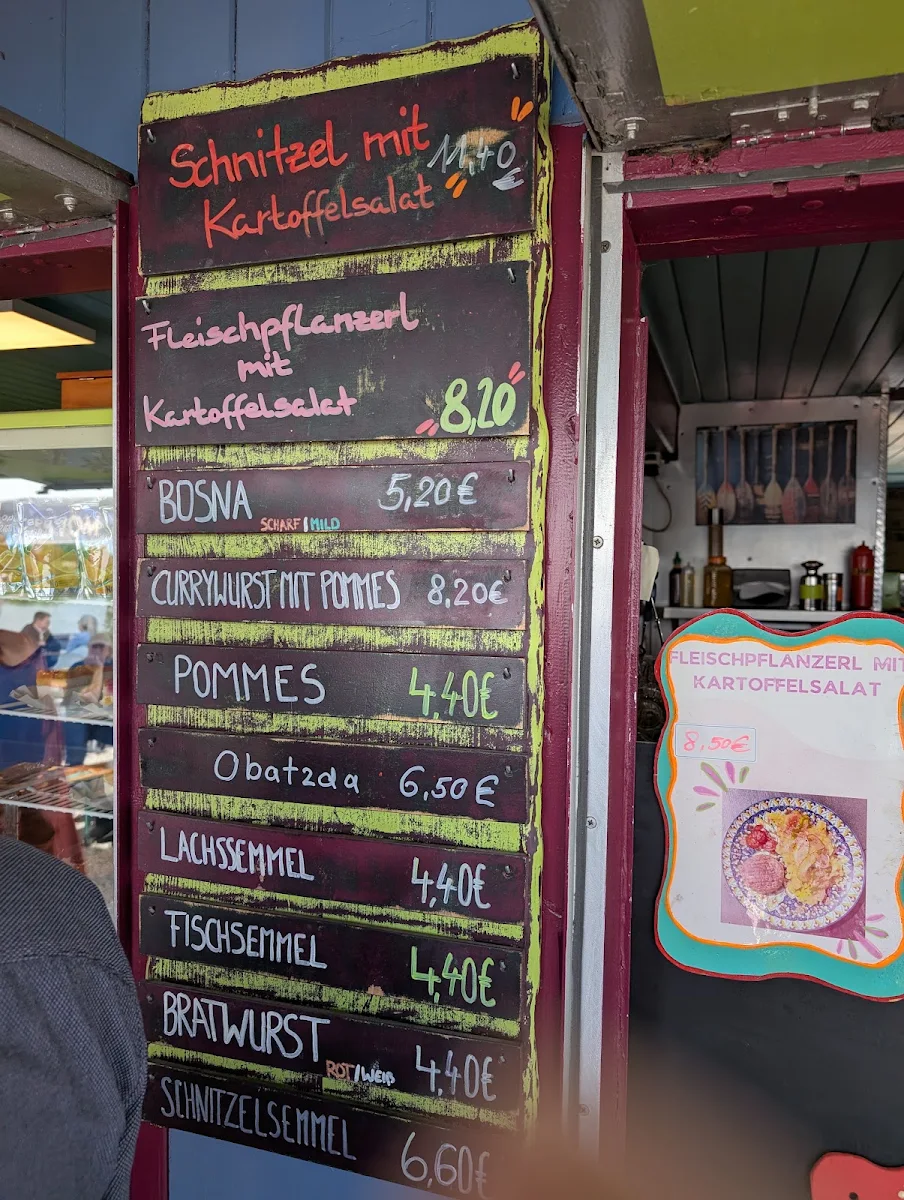 Schnitzel mit
11,40
Kartoffelsalat
Fleischpflanzerl
mit
Kartoffelsalat
8,20
BOSNA 5,20€
SCHARF/MILD
CURRYWURST MIT POMMES 8,20€
POMMES 4,40€
Obatzda 6,50€
LACHSSEMMEL 4,40€
FISCHSEMMEL 4,40€
BRATWURST 4,40€
ROT/WEIß
SCHNITZELSEMMEL 6,60€
FLEISCHPFLANZERL MIT
KARTOFFELSALAT
8,50€